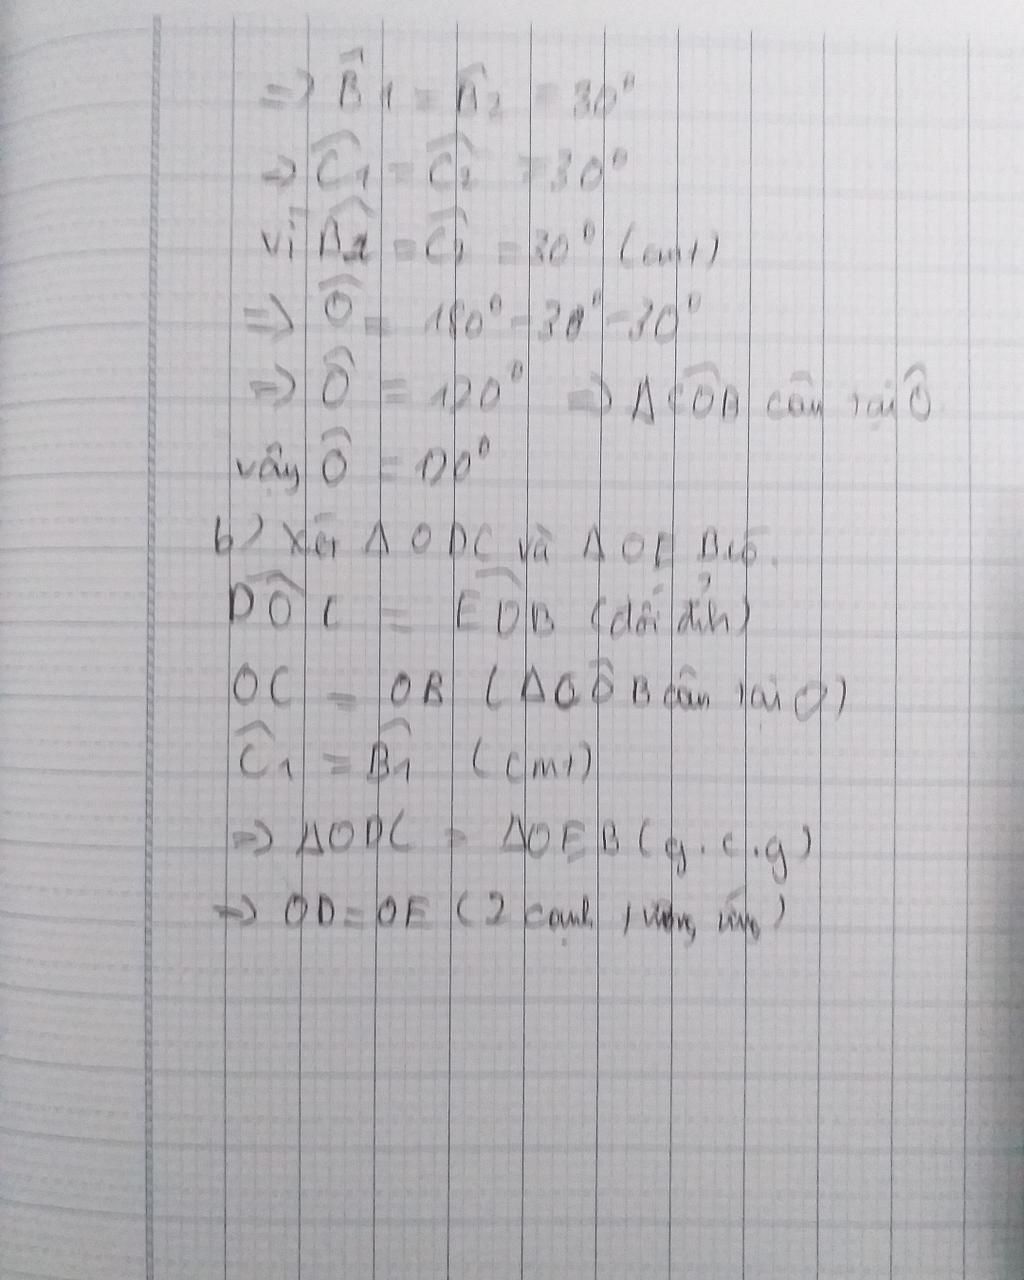 => B̂1 = B̂2 = 30°
=> Ĉ1 = Ĉ2 = 30°
vì B̂2 = Ĉ1 = 30° (cmt)
=> Ô = 180° - 30° - 30°
=> Ô = 120° => Δ CÔB cân tại Ô
vậy Ô = 120°
b) Xét Δ ODC và Δ OEB có.
DÔC = EÔB (đối đỉnh)
OC = OB (ΔCÔB cân tại O)
Ĉ1 = B̂1 (cmt)
=> ΔODC = ΔOEB (g.c.g)
=> OD = OE (2 cạnh tương ứng)